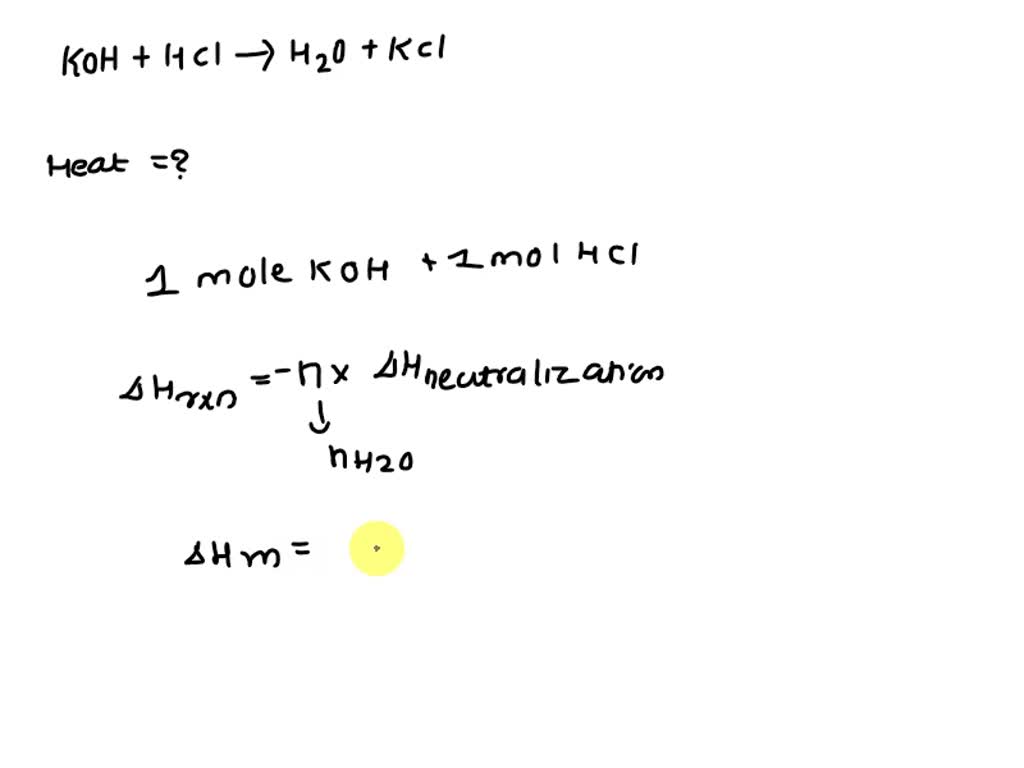 KOH + HCl → H2O + KCl
Heat = ?
1 mole KOH + 1 mol HCl
ΔHrxn = -n x ΔHneutralization
↓
nH2O
ΔHm =